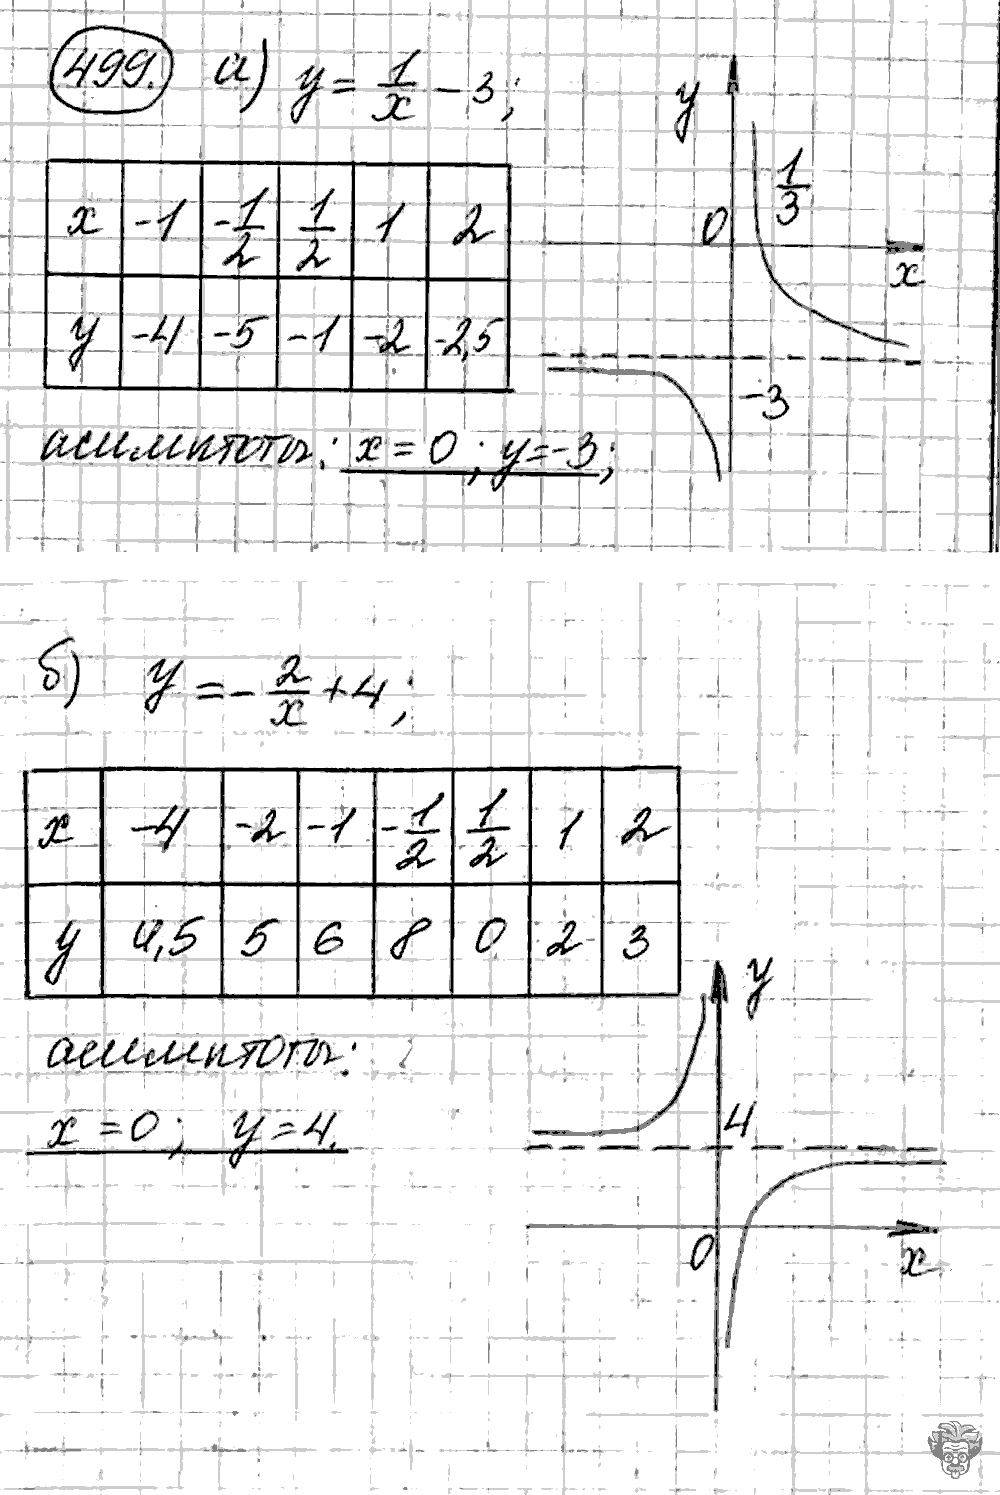 499. а) y = 1/x - 3;
x -1 -1/2 1/2 1 2
y -4 -5 -1 -2 -2,5
асимптоты: x = 0; y = -3;
y
1/3
0
x
-3
б) y = - 2/x + 4;
x -4 -2 -1 -1/2 1/2 1 2
y 4,5 5 6 8 0 2 3
асимптоты:
x = 0; y = 4.
y
4
0
x